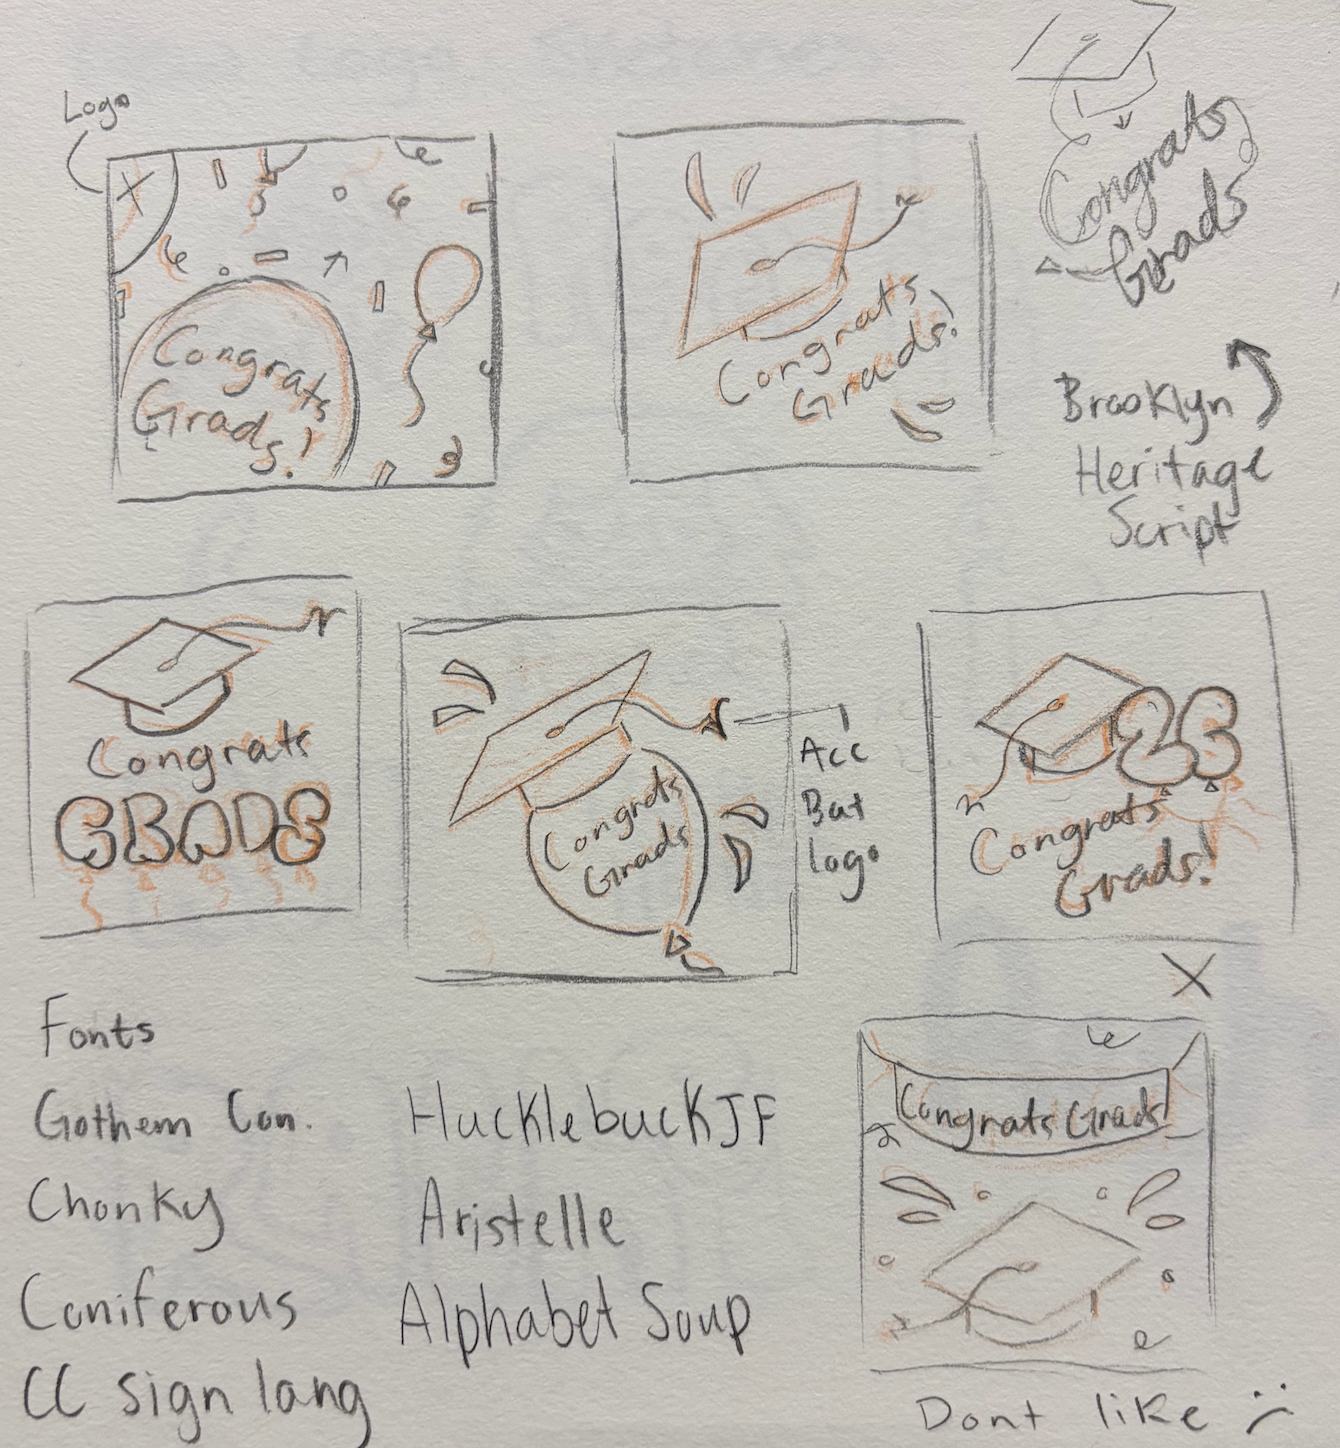 Logo
Congrats
Grads!
Congrats
Grads!
Congrats
Grads
Brooklyn
Heritage
Script
Congrats
GRADS
Congrats
Grads
Acc
But
logo
23
Congrats
Grads!
X
Fonts
Gothem Con.
Chonky
Coniferous
CC sign lang
HucklebuckJF
Aristelle
Alphabet Soup
Congrats Grads!
Dont like :(